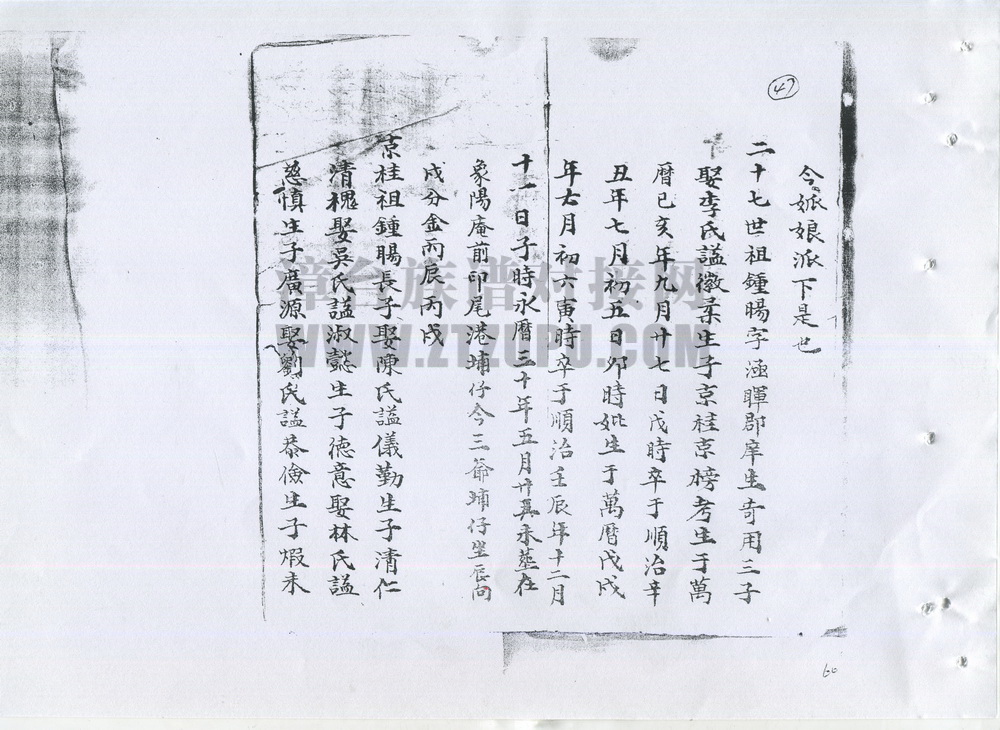 47
今娘派下是也
二十七世祖鍾暘字涵暉郡庠生奇用三子
娶李氏謚徽柔生子京桂京榜考生于萬
曆己亥年九月廿七日戌時卒于順治辛
丑年七月初五日卯時妣生于萬曆戊戌
年七月初六寅時卒于順治壬辰年十二月
十一日子時永曆三十年五月廿未塟在
象陽庵前印尾港埔仔今三爺埔仔坐辰向
戌分金丙辰丙戌
京桂祖鍾暘長子娶陳氏謚儀勤生子清仁
清槐娶吳氏謚淑懿生子德意娶林氏謚
慈慎生子廣源娶劉氏謚恭儉生子煆未
漳台族谱对接网
WWW.ZTZUPU.COM
60